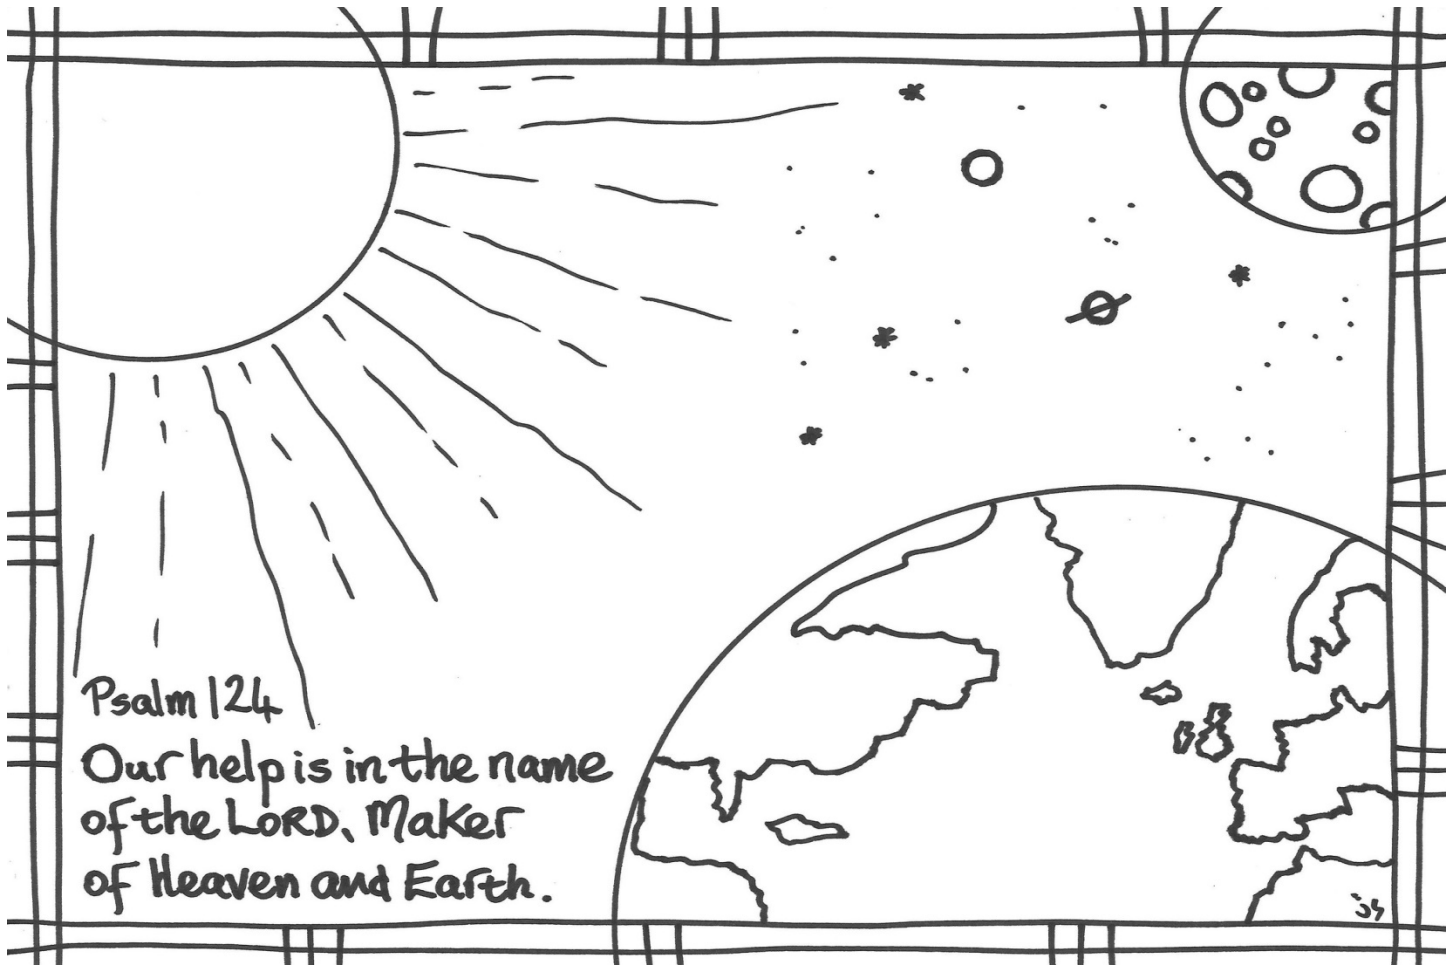 Psalm 124
Our help is in the name
of the LORD, Maker
of Heaven and Earth.